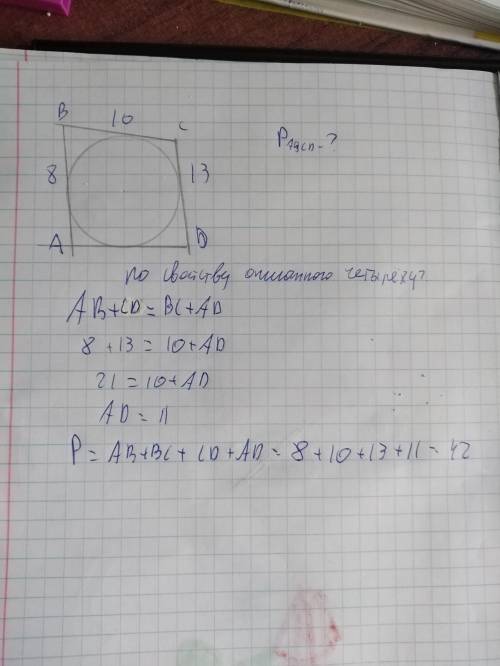 B 10 C
P ABCD - ?
8 13
A D
по свойству описанного четырехуг
AB+CD = BC+AD
8 + 13 = 10+AD
21 = 10+AD
AD = 11
P = AB+BC+CD+AD = 8+10+13+11 = 42